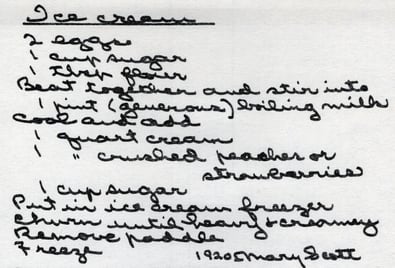 Ice cream
2 eggs
1 cup sugar
1 tbsp flour
Beat together and stir into
1 pint (generous) boiling milk
Cool and add
1 quart cream
1 " crushed peaches or
strawberries
1 cup sugar
Put in ice cream freezer
Churn until heavy & creamy
Remove paddle
Freeze
1920s Mary Scott